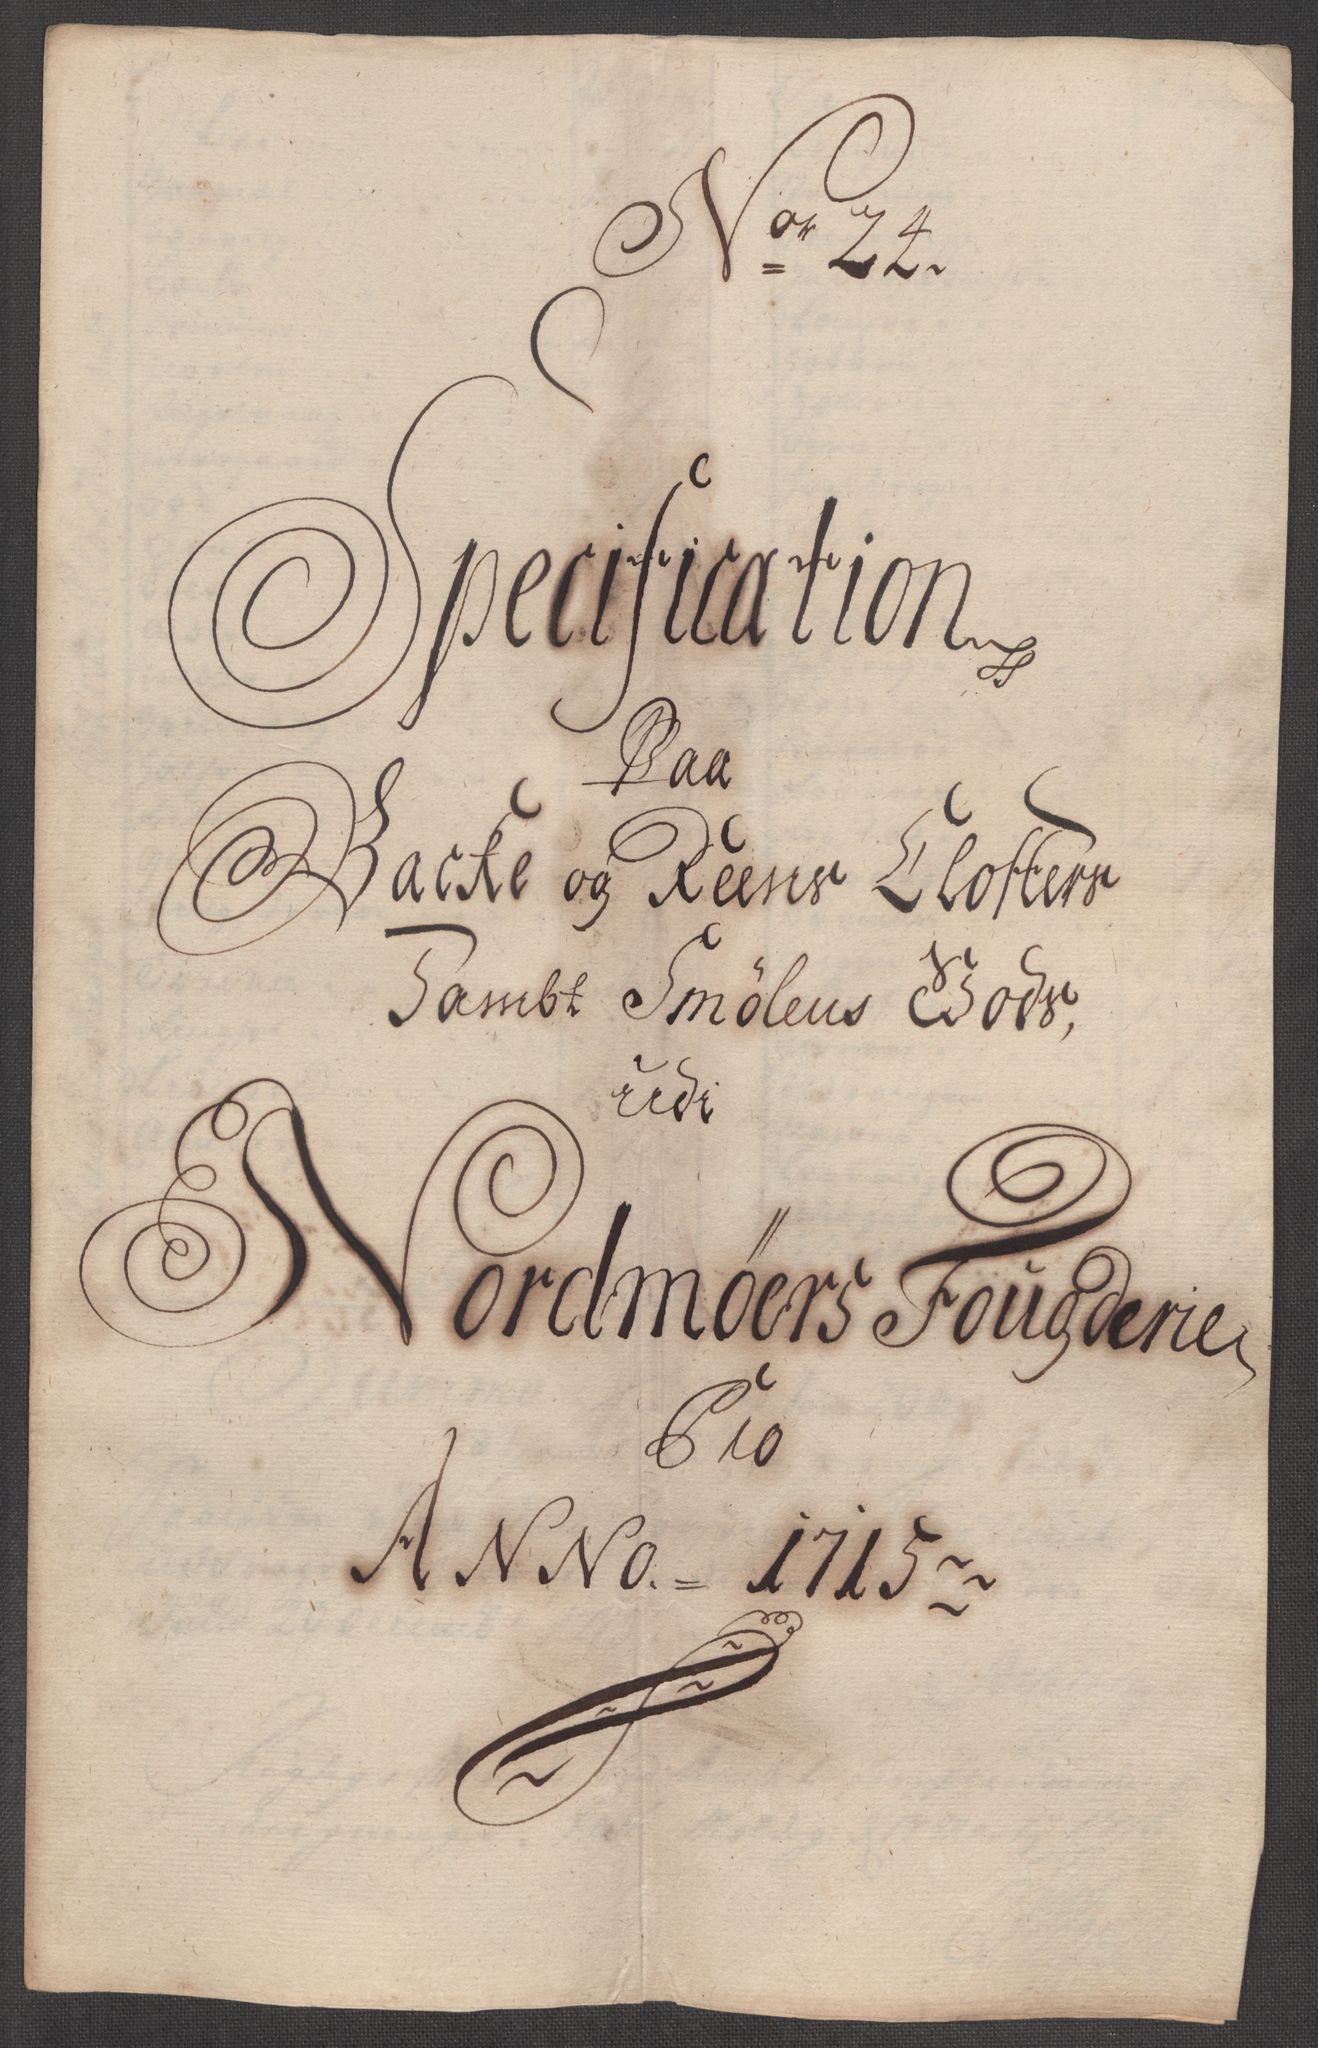 No 24.
Specification
Paa
Backe og Reens Closters
Sambt Smölens Gods,
udi
Nordmöers Fougderie
Pro
ANNO. = 1715